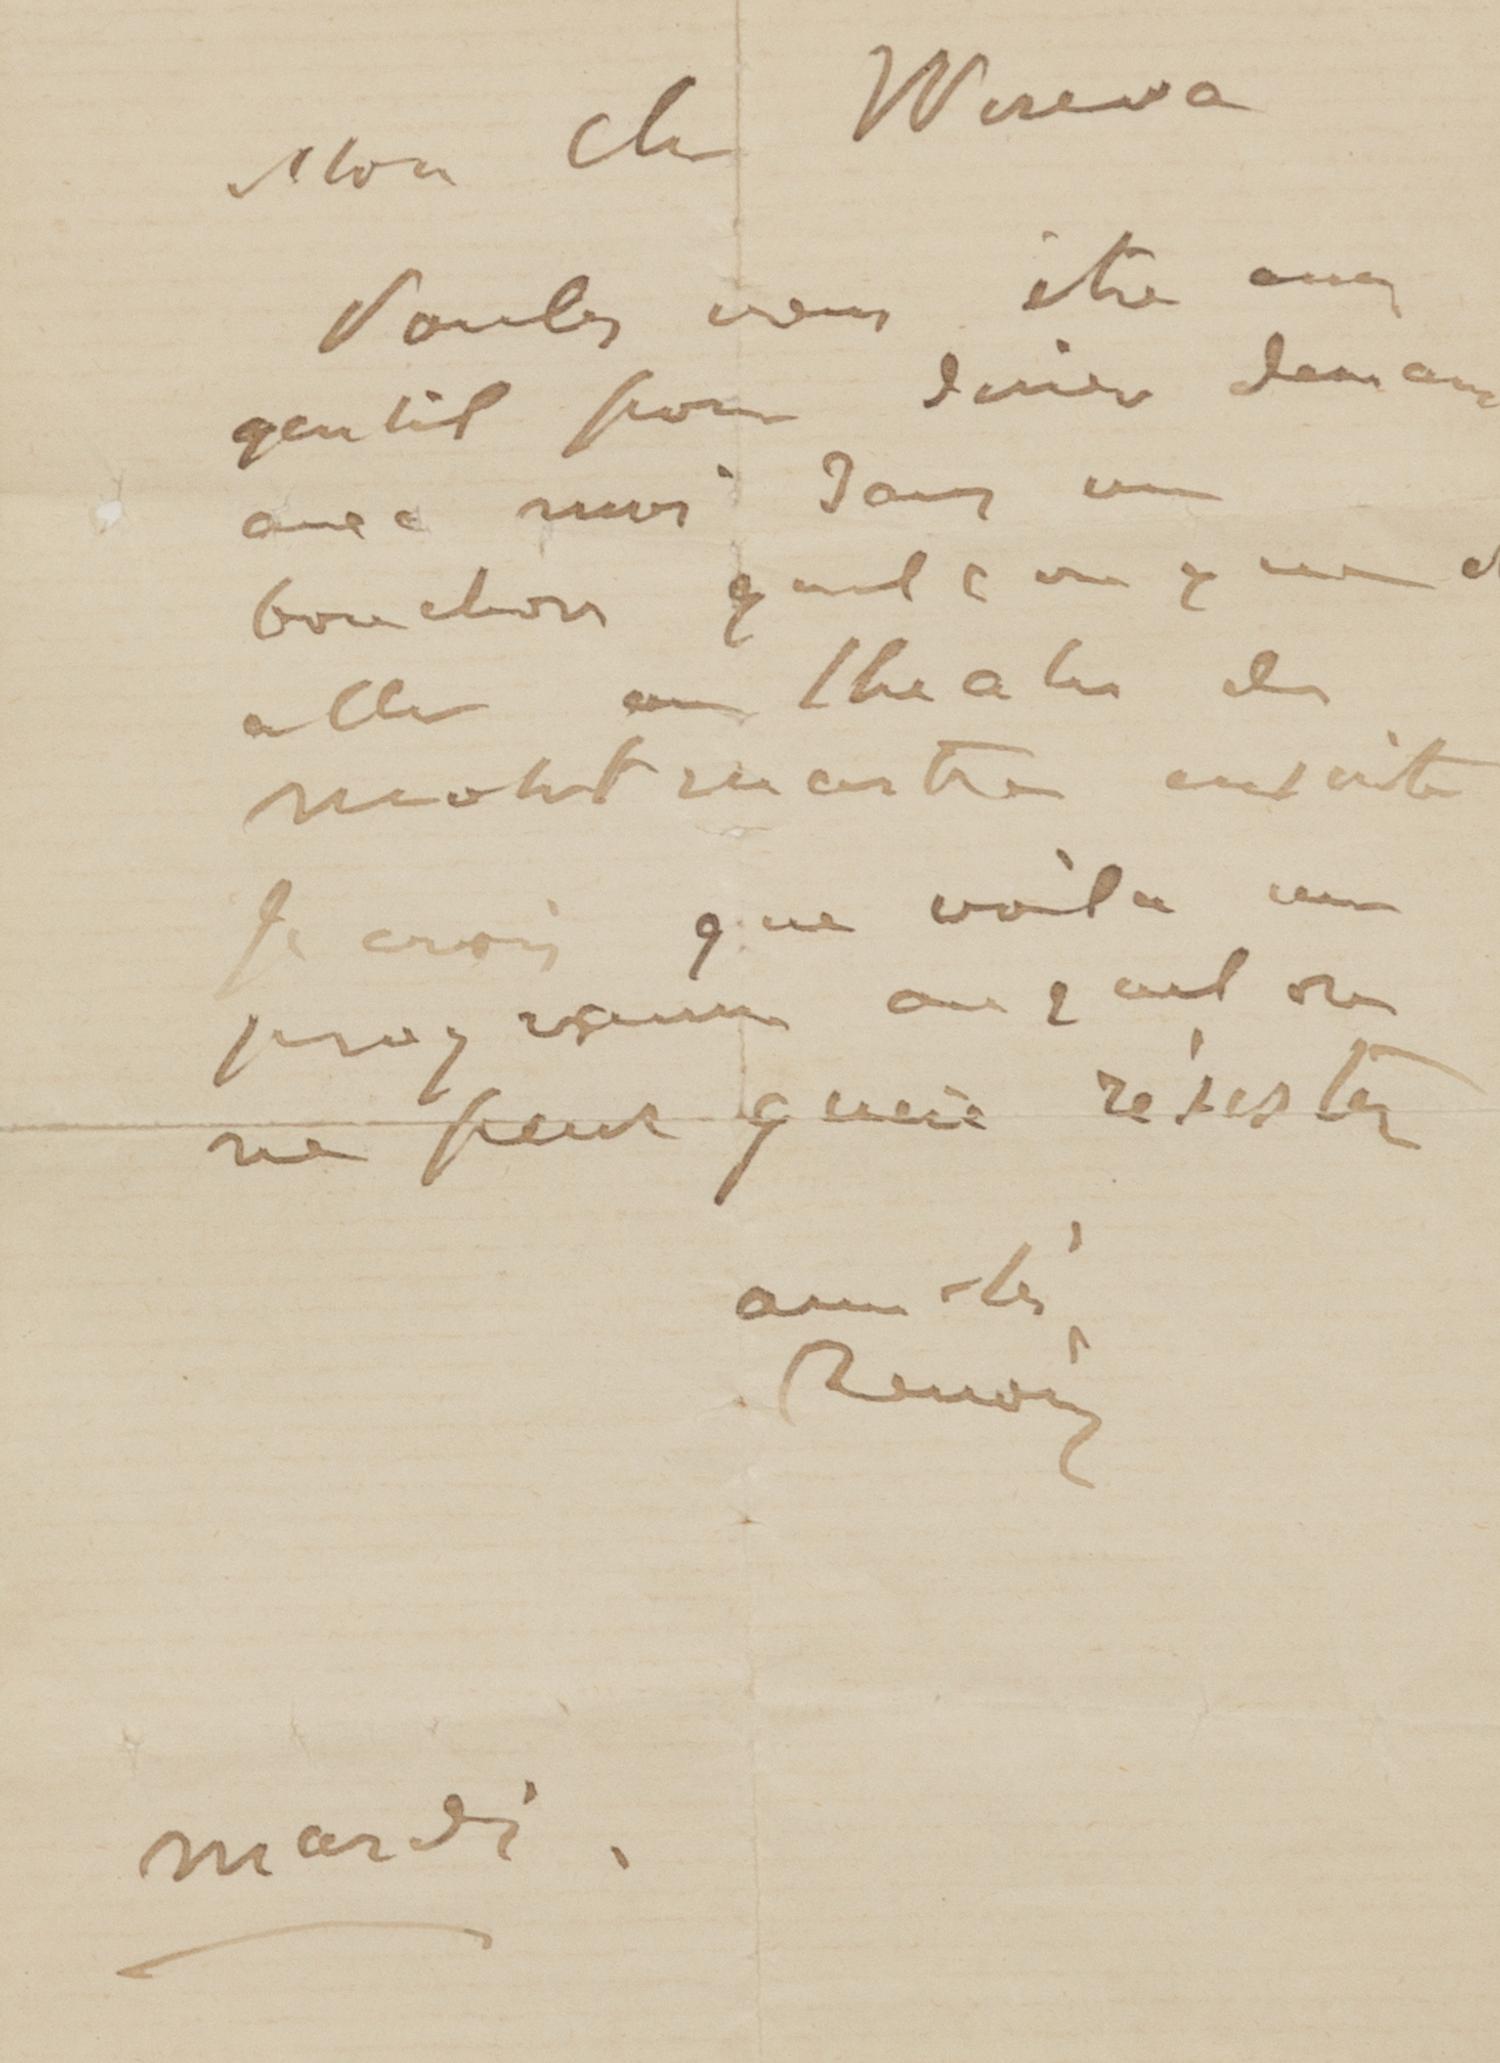 Mon cher Wirewa
Voulez vous être assez
gentil pour diner demain
avec moi dans un
bouchon quelconque et
aller au theatre de
montmartre ensuite
Je crois que voila un
programme auquel on
ne peut guère résister
amitiés
Renoir
mardi.